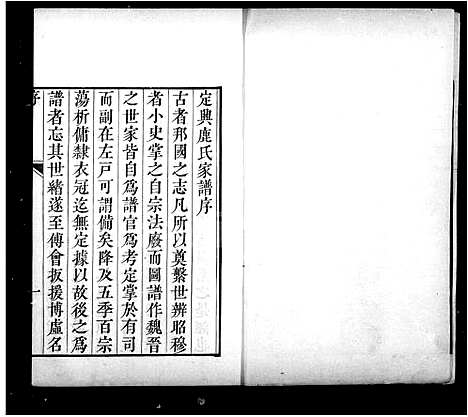 定興鹿氏家譜序
古者邦國之志凡所以奠繫世辨昭穆
者小史掌之自宗法廢而圖譜作魏晉
之世家皆自為譜官為考定掌於有司
而副在左戶可謂備矣降及五季百宗
蕩析傭隸衣冠迄無定據以故後之為
譜者忘其世緒遂至傅會扳援博虛名
序
一